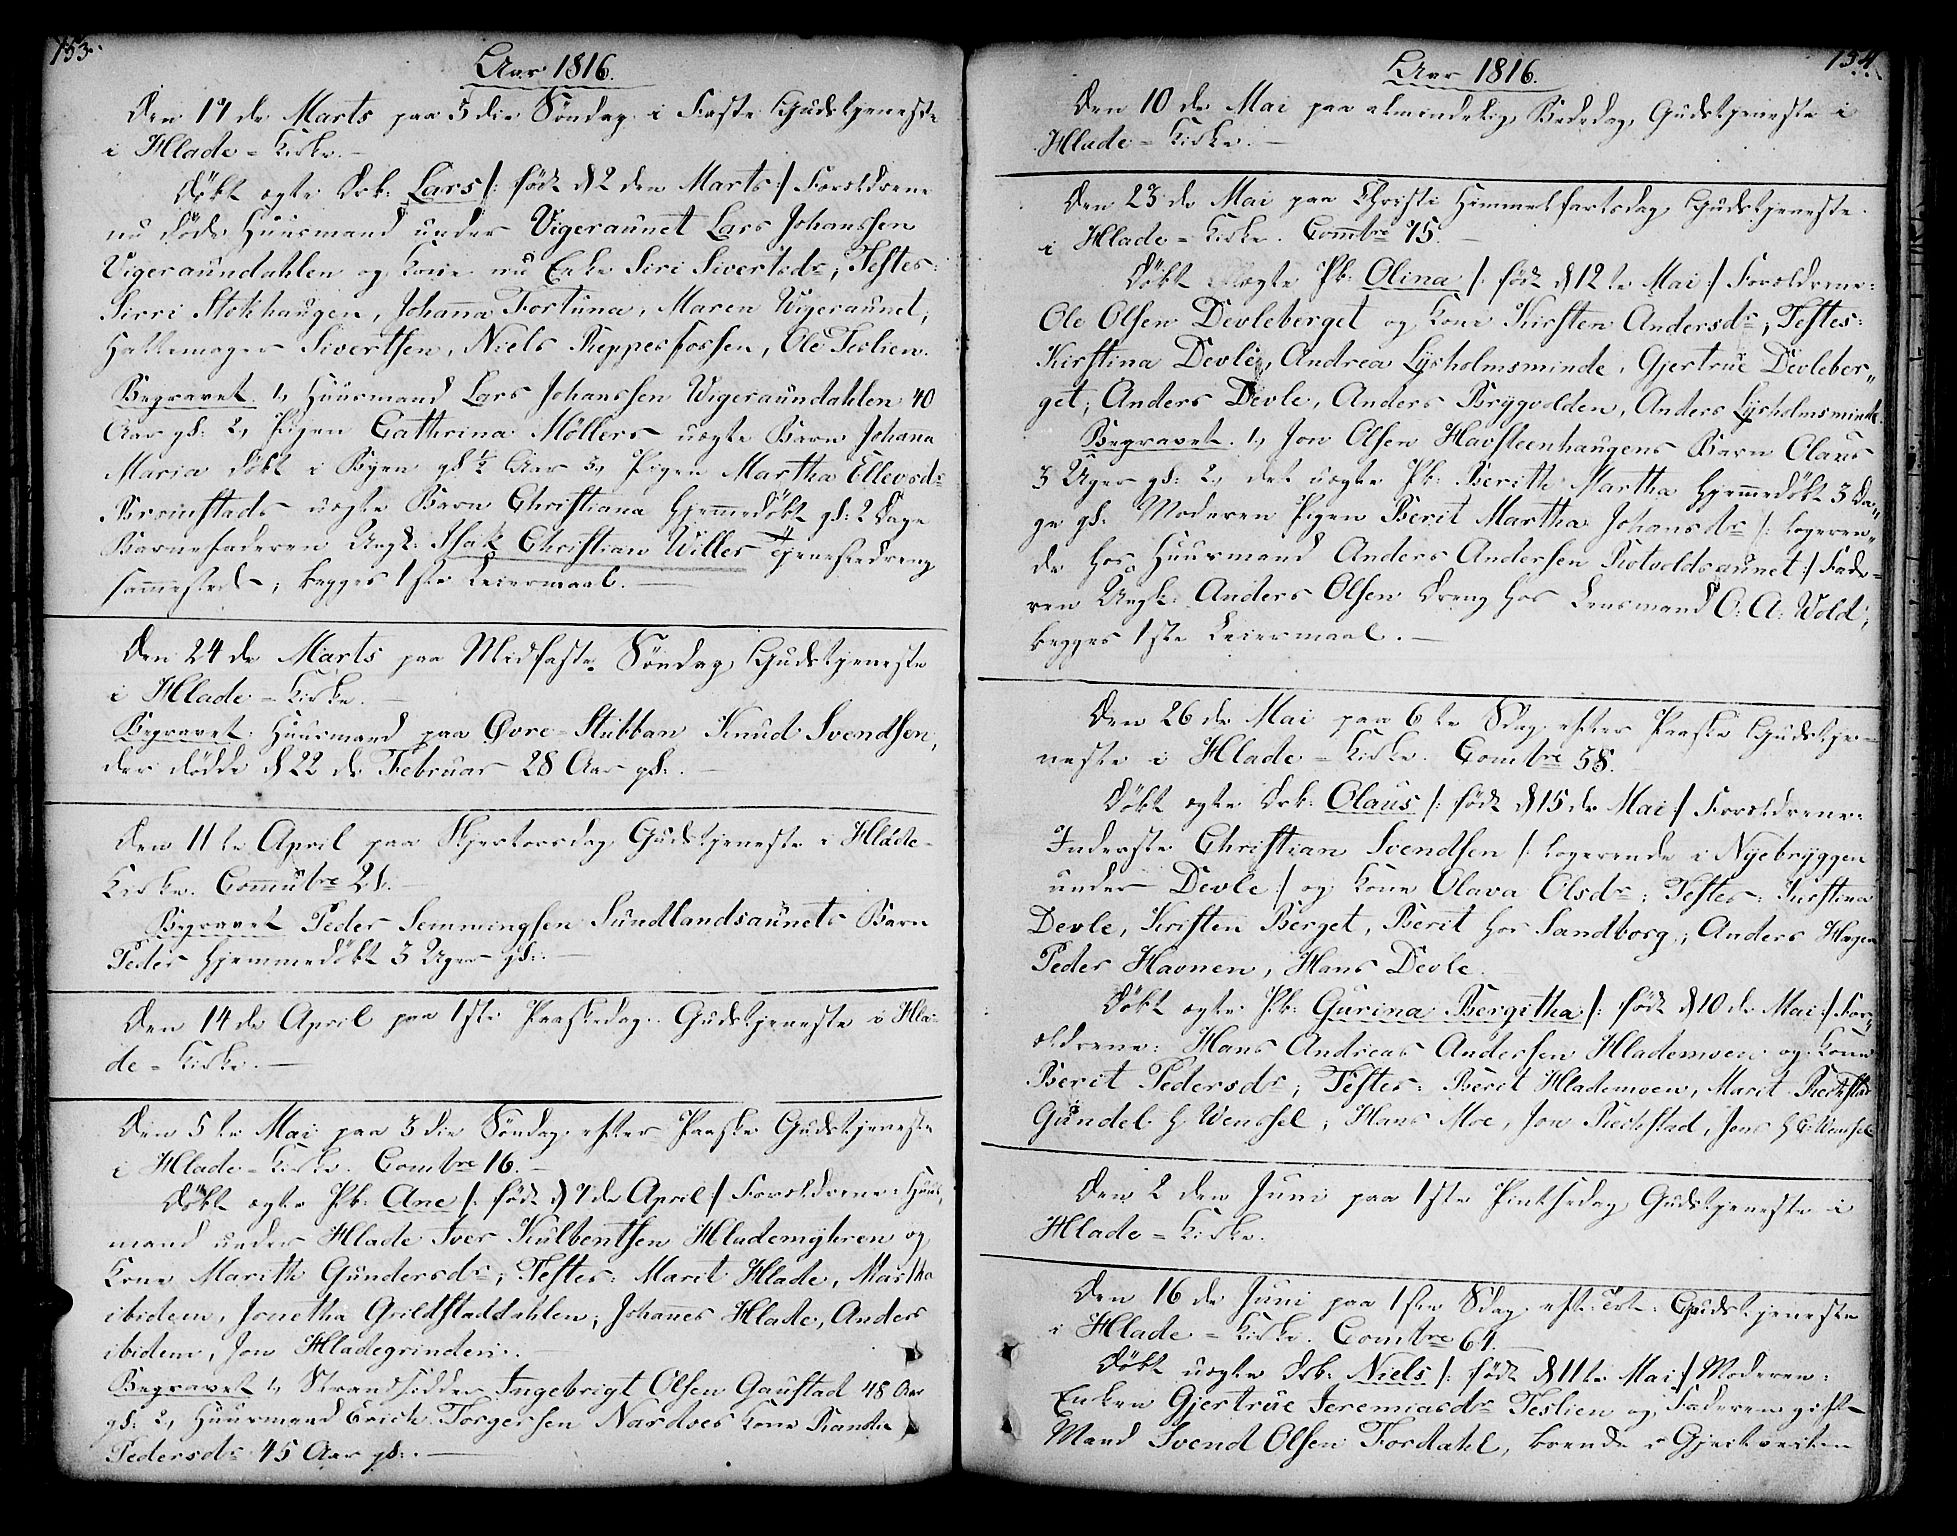 153.
Aar 1816.
Den 17 de Marts paa 3 die Söndag i Faste Gudstjeneste
i Hlade = Kirke. —
Döbt ægte Drb: Lars /: föd d 2 den Marts :/ Forældrene
nu döde Huusmand under Vigeraunet Lars Johanssen
Vigeraundahlen og Kone nu Enke Siri Sivertsdr; Testes:
Sirri Stokhaugen, Johanna Fortuna, Maren Vigeraunet,
Hattemager Sivertsen, Niels Reppesfossen, Ole Teslien.
Begravet. 1, Huusmand Lars Johanssen Vigeraundahlen 40
Aar gl: 2, Pigen Cathrina Möllers uægte Barn Johanna
Maria döbt i Byen gl ½ Aar 3, Pigen Martha Ellevsdr
Bromstads uægte Barn Christiana Hjemmedöbt gl: 2 Dage
Barnefaderen Ungk: Isak Christian Willes Tjenestedreng
sammested, begges 1ste Leiermaal. —
Den 24 de Marts paa Midfaste Söndag Gudstjeneste
i Hlade = Kirke. —
Begravet. Huusmand paa Øvre = Stubban Knud Svendsen,
der döde d 22 de Februar 28 Aar gl:. —
Den 11 te April paa Skjertorsdag Gudstjeneste i Hlade =
Kirke. Commûtre 21. —
Begravet Peder Semmingsen Sundlandsaunets Barn
Peder Hjemmedöbt 3 Uger gl:. —
Den 14 de April paa 1ste Paaskedag Gudstjeneste i Hla-
de = Kirke. —
Den 5 te Mai paa 3 die Söndag efter Paaske Gudstjeneste
i Hlade = Kirke. Comtre 16. —
Döbt ægte Pb: Ane /: föd d 7 de April :/ Forældrene: Huus-
mand under Hlade Iver Kulbentsen Hlademyhren og
Kone Marith Gundersdr; Testes: Marit Hlade, Martha
ibidem, Jonetha Grildstaddahlen; Johannes Hlade, Anders
ibidem, Jon Hladegrinden. —
Begravet 1, Strandsidder Ingebrigt Olsen Gaustad 48 Aar
gl: 2, Huusmand Erich Torgersen Nardoes Kone Randi
Pedersdr 45 Aar gl:. —
154.
Aar 1816.
Den 10 de Mai paa almindelig Bededag, Gudstjeneste i
Hlade = Kirke. —
Den 23 de Mai paa Christi Himmelfartsdag Gudstjeneste
i Hlade = Kirke. Commtre 75. —
Döbt ægte Pb: Olina /: föd d 12 te Mai :/ Forældrene:
Ole Olsen Devleberget og Kone Kirsten Andersdr; Testes:
Kirstina Devle, Andrea Lysholmsminde, Gjertrue Devleber„
get; Anders Devle, Anders Brygvolden, Anders Lysholmsminde.
Begravet. 1, Jon Olsen Havsteenhaugens Barn Olaus
3 Uger gl: 2, det uægte Pb: Berith Martha Hjemmedöbt 3 Da„
ge gl. Moderen Pigen Berit Martha Johansdr /: logeren„
de hos Huusmand Anders Andersen Rotvoldsaunet :/ Fade-
ren Ungk: Anders Olsen Dreng hos Lensmand O: A: Wold;
begges 1ste Leiermaal. —
Den 26 de Mai paa 6 te Sdag efter Paaske Gudstje-
neste i Hlade = Kirke. Comtre 38.
Döbt ægte Drb: Olaus /: föd d 15 de Mai :/ Forældrene:
Inderste Christian Svendsen /: logerende i Nyebryggen
under Devle :/ og Kone Olava Olsdr; Testes: Kirstina
Devle, Kirsten Berget, Berit hos Sandborg; Anders Hagen
Peder Havnen, Hans Devle.
Döbt ægte Pb: Gurina Bergitha /: föd d 10 de Mai :/ For„
ældrene: Hans Andreas Andersen Hlademoen og Kone
Berit Pedersdr; Testes: Berit Hlademoen, Marit Rechstad
Gundel h Wenssel; Hans Moe, Jon Rechstad, Jens h C: Wenssel
Den 2 den Juni paa 1ste Pintsedag Gudstjeneste i
Hlade = Kirke.
Den 16 de Juni paa 1ste Sdag efter Tref: Gudstjeneste
i Hlade = Kirke. Comtre 64. —
Döbt uægte Drb: Niels /: föd d 11 te Mai :/ Moderen:
Enken Gjertrue Jeremiasdr Teslien og Faderen gift
Mand Svend Olsen Fordahl, boende i